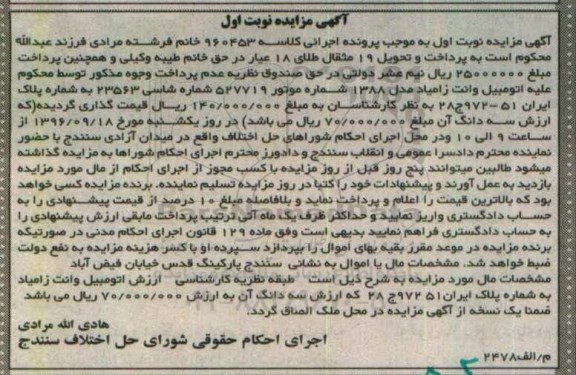 آگهی مزایده نوبت اول
آگهی مزایده نوبت اول به موجب پرونده اجرائی کلاسه ۹۶۰۴۵۳ خانم فرشته مرادی فرزند عبدالله
محکوم است به پرداخت و تحویل ۱۹ مثقال طلای ۱۸ عیار در حق خانم طیبه وکیلی و همچنین پرداخت
مبلغ ۲۵۰۰۰۰۰۰ ریال نیم عشر دولتی در حق صندوق نظریه عدم پرداخت وجوه مذکور توسط محکوم
علیه اتومبیل وانت زامیاد مدل ۱۳۸۸ شماره موتور ۵۲۷۷۱۹ شماره شاسی ۲۳۵۶۳ به شماره پلاک
ایران ۵۱-۹۷۲ج۲۸ به نظر کارشناسان به مبلغ ۱۴۰/۰۰۰/۰۰۰ ریال قیمت گذاری گردیده(که
ارزش سه دانگ آن مبلغ ۷۰/۰۰۰/۰۰۰ ریال می باشد) در روز یکشنبه مورخ ۱۳۹۶/۰۹/۱۸ از
ساعت ۹ الی ۱۰ ودر محل اجرای احکام شوراهای حل اختلاف واقع در میدان آزادی سنندج با حضور
نماینده محترم دادسرا عمومی و انقلاب سنندج و دادورز محترم اجرای احکام شوراها به مزایده گذاشته
میشود طالبین میتوانند پنج روز قبل از روز مزایده با کسب مجوز از اجرای احکام از مال مورد مزایده
بازدید به عمل آورند و پیشنهادات خود را کتبا در روز مزایده تسلیم نماینده. برنده مزایده کسی خواهد
بود که بالاترین قیمت را اعلام و پرداخت نماید و بلافاصله مبلغ ۱۰ درصد از قیمت پیشنهادی را به
حساب دادگستری واریز نمایید و حداکثر ظرف یک ماه آتی ترتیب پرداخت مابقی ارزش پیشنهادی را
به حساب دادگستری فراهم نمایید بدیهی است وفق ماده ۱۲۹ قانون اجرای احکام مدنی در صورتیکه
برنده مزایده در موعد مقرر بقیه بهای اموال را نپردازد سپرده او با کسر هزینه مزایده به نفع دولت
ضبط خواهد شد. مشخصات مال یا اموال به نشانی سنندج پارکینگ قدس خیابان فیض آباد
مشخصات مال مورد مزایده به شرح ذیل است طبقه نظریه کارشناسی ارزش اتومبیل وانت زامیاد
به شماره پلاک ایران۵۱ ۹۷۲ج ۲۸ که ارزش سه دانگ آن به ارزش ۷۰/۰۰۰/۰۰۰ ریال می باشد
ضمنا یک نسخه از آگهی مزایده در محل ملک الصاق گردد.
هادی الله مرادی
اجرای احکام حقوقی شورای حل اختلاف سنندج
م/الف۲۴۷۸